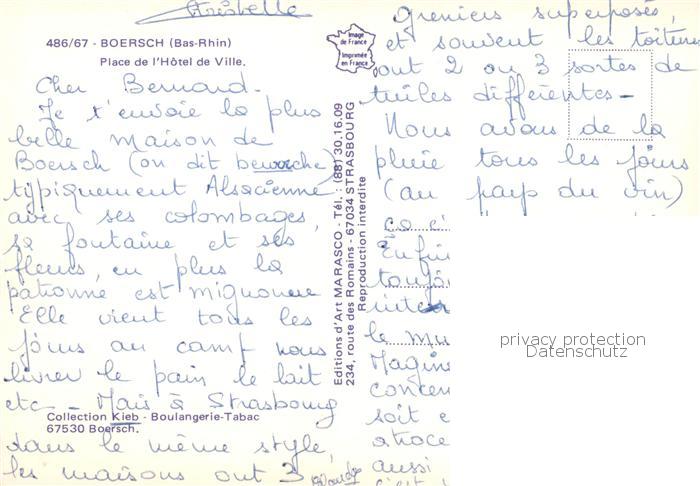 Christelle
486/67 - BOERSCH (Bas-Rhin)
Place de l'Hôtel de Ville.
Image de France
Imprimée en France
Cher Bernard.
Je t'envoie la plus
belle maison de
Boersch (on dit
typiquement Alsacienne
avec ses colombages,
sa fontaine et ses
fleurs, en plus la
patronne est mignonne
Elle vient tous les
jours au camp nous
livrer le pain le lait
etc - Mais à Strasbourg
Collection Kieb - Boulangerie-Tabac
67530 Boersch.
dans le même style,
les maisons ont 3
Editions d'Art MARASCO - Tél. : (88) 30.16.09
234, route des Romains - 67034 STRASBOURG
Reproduction interdite
greniers superposés,
et souvent les toitures
ont 2 ou 3 sortes de
tuiles différentes -
Nous avons de la
pluie tous les jours
(au pays du vin)
ça c'
Enfin
toujo
inte
le mu
Magin
concen
soit e
atroce
aussi
c'est
privacy protection
Datenschutz